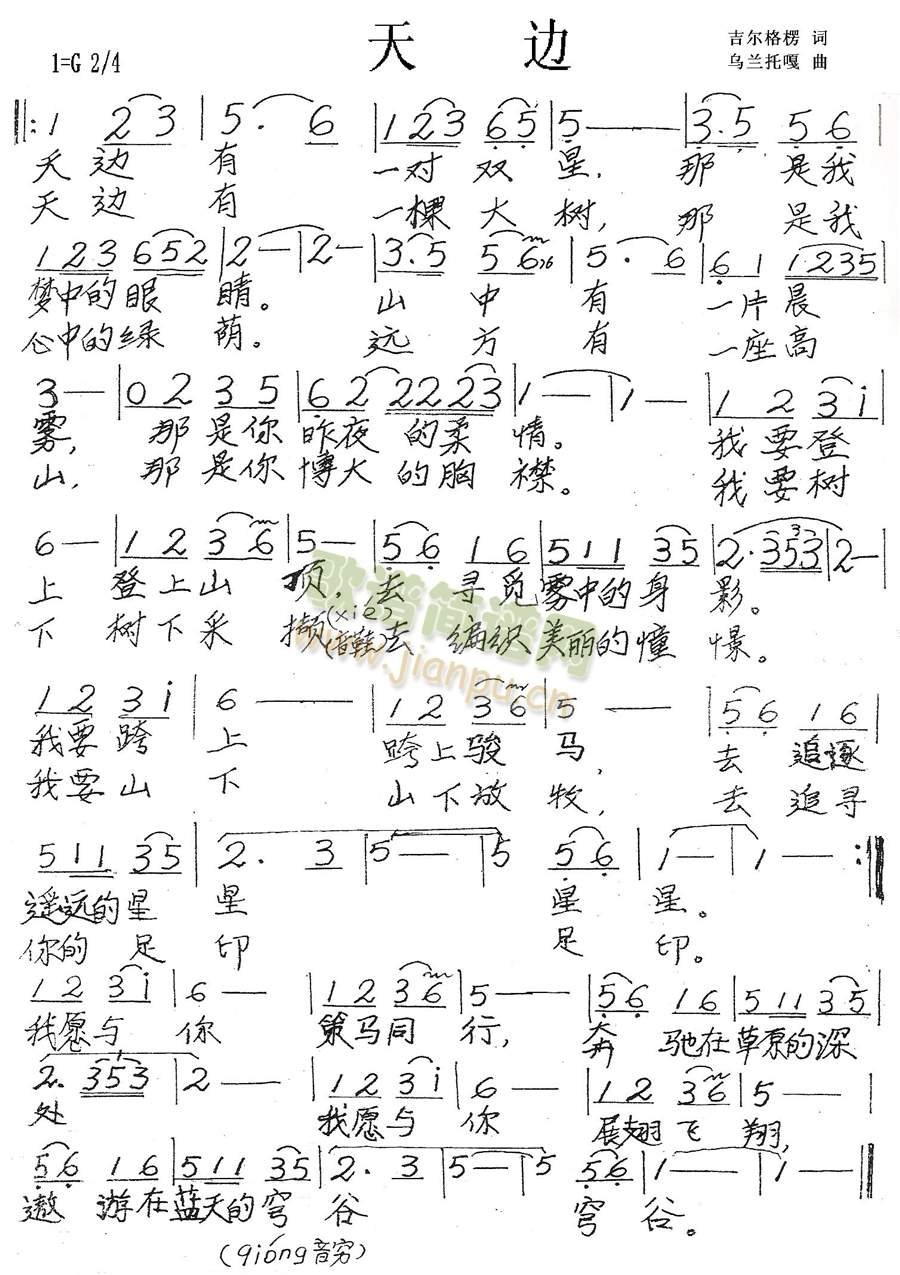 天 边
1=G 2/4
吉尔格楞 词
乌兰托嘎 曲
‖: 1 2 3 | 5 . 6 | 1 2 3 6 5 | 5 — — | 3 . 5 5 6
天 边 有 一对 双 星, 那 是我
天 边 有 一棵 大 树, 那 是我
1 2 3 6 5 2 | 2 — | 2 — | 3 . 5 5 6 | 5 . 6 | 6 1 1 2 3 5
梦中的眼 睛。 山 中 有 一片晨
心中的绿 荫。 远 方 有 一座高
3 — | 0 2 3 5 | 6 2 2 2 2 3 | 1 — | 1 — | 1 2 3 i
雾, 那 是你 昨夜 的柔 情。 我要登
山, 那 是你 博大 的胸 襟。 我要树
6 — | 1 2 3 6 | 5 — | 5 6 1 6 | 5 1 1 3 5 | 2 . 3 5 3 | 2 —
3
上 登上山 顶, 去 寻觅雾中的身 影。
下 树下采 撷(xié)(音鞋)去 编织美丽的憧 憬。
歌谱简谱网
www.jianpu.cn
1 2 3 i | 6 — | 1 2 3 6 | 5 — — | 5 6 1 6
我要跨 上 跨上骏 马, 去 追逐
我要山 下 山下放 牧, 去 追寻
5 1 1 3 5 | 2 . 3 | 5 — | 5 5 6 | 1 — | 1 — :‖
遥远的星 星 星 星。
你的 足 印 足 印。
1 2 3 i | 6 — | 1 2 3 6 | 5 — — | 5 6 1 6 | 5 1 1 3 5
我愿与 你 策马同 行, 奔 驰在草原的深
2 . 3 5 3 | 2 — — | 1 2 3 i | 6 — — | 1 2 3 6 | 5 — |
处 我愿与 你 展翅飞 翔,
5 6 1 6 | 5 1 1 3 5 | 2 . 3 | 5 — | 5 5 6 | 1 — — | 1 — ‖
遨 游在蓝天的穹 谷 穹 谷。
(qióng音穷)